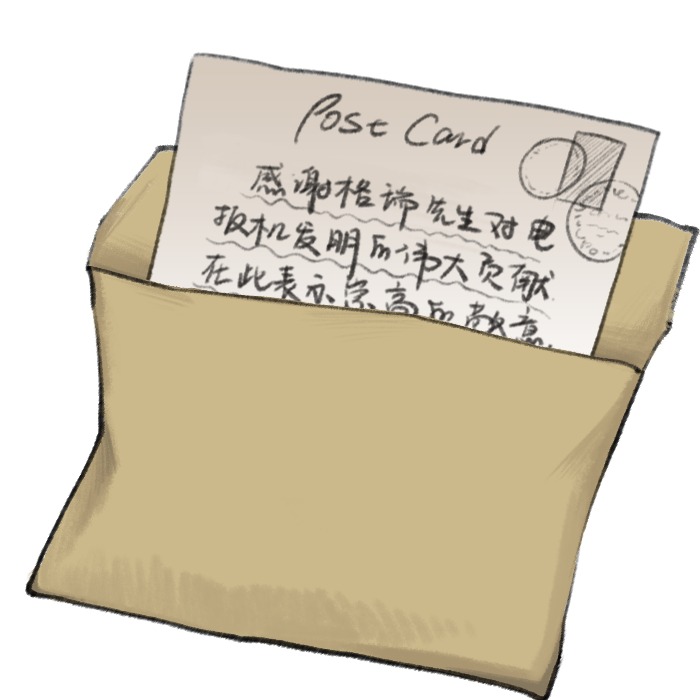 Post Card
感谢格蒂先生对电
报机发明的伟大贡献
在此表示崇高的敬意.